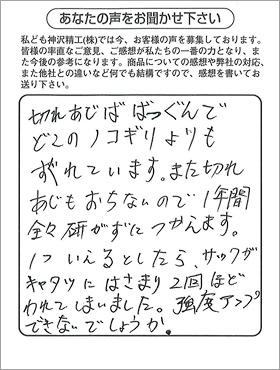 あなたの声をお聞かせ下さい
私ども神沢精工(株)では今、お客様の声を募集しております。
皆様の率直なご意見、ご感想が私たちの一番の力となり、ま
た今後の参考になります。商品についての感想や弊社の対応、
また他社との違いなど何でも結構ですので、感想を書いてお
送り下さい。
切れあじは ばつぐんで
どこの ノコギリよりも
すぐれています。また切れ
あじも おちないので 1年間
全々 研がずに つかえます。
1つ いえるとしたら、サックが
キャタツに はさまり 2回ほど
われてしまいました。強度アップ
できないでしょうか。